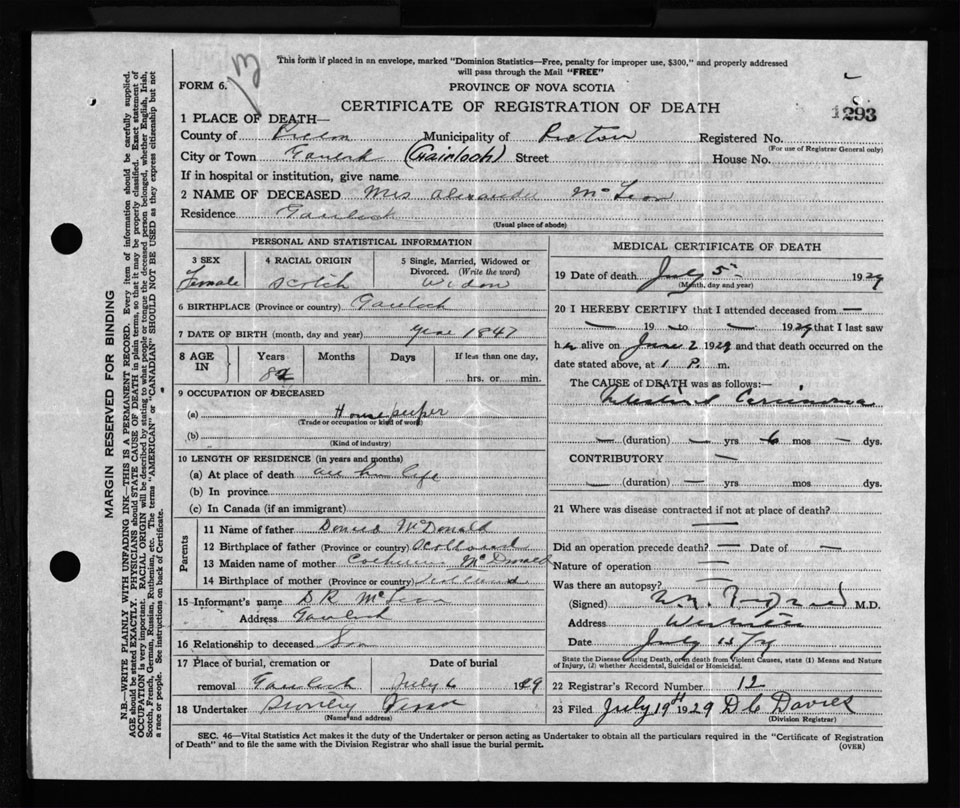 This form if placed in an envelope, marked "Dominion Statistics—Free, penalty for improper use, $300," and properly addressed
will pass through the Mail "FREE"
13
FORM 6.
PROVINCE OF NOVA SCOTIA
CERTIFICATE OF REGISTRATION OF DEATH
1293
1 PLACE OF DEATH—
County of Pictou Municipality of Pictou Registered No.
(For use of Registrar General only)
City or Town (Gairloch) Street House No.
If in hospital or institution, give name
2 NAME OF DECEASED Mrs Alexander McLean
Residence Gairloch
(Usual place of abode)
PERSONAL AND STATISTICAL INFORMATION
3 SEX 4 RACIAL ORIGIN 5 Single, Married, Widowed or Divorced. (Write the word)
Female Scotch Widow
6 BIRTHPLACE (Province or country) Gairloch
7 DATE OF BIRTH (month, day and year) year 1847
8 AGE IN Years Months Days If less than one day,
82 hrs. or min.
9 OCCUPATION OF DECEASED
(a) Housekeeper
(Trade or occupation or kind of work)
(b)
(Kind of industry)
10 LENGTH OF RESIDENCE (in years and months)
(a) At place of death all her life
(b) In province
(c) In Canada (if an immigrant)
Parents
11 Name of father McDonald
12 Birthplace of father (Province or country) Scotland
13 Maiden name of mother Catherine McDonald
14 Birthplace of mother (Province or country) Scotland
15 Informant's name D R McLean
Address Gairloch
16 Relationship to deceased Son
17 Place of burial, cremation or Date of burial
removal Gairloch July 6 1929
18 Undertaker
(Name and address)
MEDICAL CERTIFICATE OF DEATH
19 Date of death July 5 1929
(Month, day and year)
20 I HEREBY CERTIFY that I attended deceased from —
— 19 — to — 1929 that I last saw
her alive on June 2 1929 and that death occurred on the
date stated above, at 1 P. m.
The CAUSE of DEATH was as follows:—
Intestinal Carcinoma
— (duration) — yrs 6 mos — dys.
CONTRIBUTORY —
— (duration) — yrs mos dys.
21 Where was disease contracted if not at place of death?
—
Did an operation precede death? — Date of —
Nature of operation —
Was there an autopsy? —
(Signed) M.D.
Address
Date July
State the Disease Causing Death, or in death from Violent Causes, state (1) Means and Nature
of Injury, (2) whether Accidental, Suicidal or Homicidal.
22 Registrar's Record Number 12
23 Filed July 19th 1929 D C Davies
(Division Registrar)
SEC. 46—Vital Statistics Act makes it the duty of the Undertaker or person acting as Undertaker to obtain all the particulars required in the "Certificate of Registration
of Death" and to file the same with the Division Registrar who shall issue the burial permit.
(OVER)
MARGIN RESERVED FOR BINDING
N.B.—WRITE PLAINLY WITH UNFADING INK—THIS IS A PERMANENT RECORD. Every item of information should be carefully supplied.
AGE should be stated EXACTLY. PHYSICIANS should STATE CAUSE OF DEATH in plain terms, so that it may be properly classified. Exact statement of
OCCUPATION is very important. RACIAL ORIGIN will be described by stating to what people or tongue the deceased person belonged, whether English, Irish,
Scotch, French, German, Russian, Ruthenian, etc. The terms "AMERICAN" or "CANADIAN" SHOULD NOT BE USED as they express citizenship but not
a race or people. See instructions on back of Certificate.